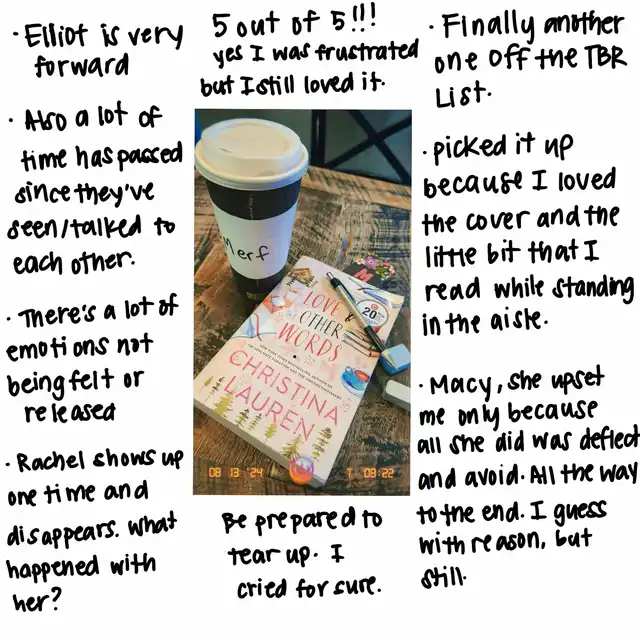 · Elliot is very
forward
· Also a lot of
time has passed
since they've
seen/talked to
each other.
· There's a lot of
emotions not
being felt or
released
· Rachel shows up
one time and
disappears. What
happened with
her?
5 out of 5!!!
yes I was frustrated
but I still loved it.
Merf
LOVE
& OTHER
WORDS
CHRISTINA
LAUREN
20
08 13 '24
T 03:22
Be prepared to
tear up. I
cried for sure.
· Finally another
one off the TBR
List.
· picked it up
because I loved
the cover and the
little bit that I
read while standing
in the aisle.
· Macy, she upset
me only because
all she did was deflect
and avoid. All the way
to the end. I guess
with reason, but
still.